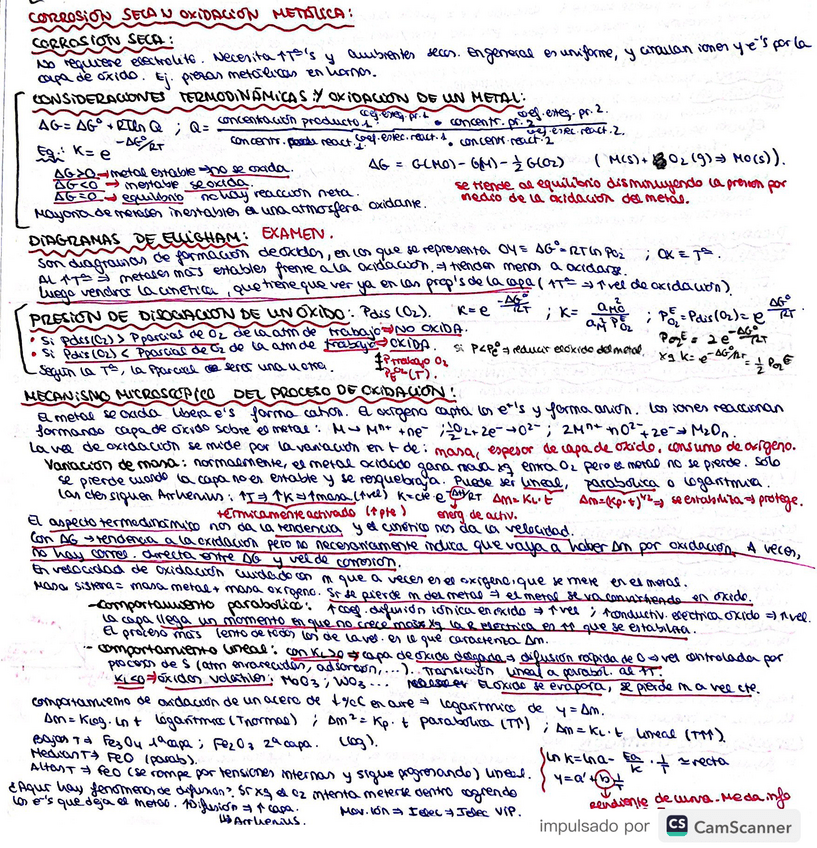 CORROSIÓN SECA U OXIDACIÓN METÁLICA:
CORROSIÓN SECA:
No requiere electrolito. Necesita ↑Tªs y ambientes secos. En general es uniforme, y circulan iones y e⁻s por la
capa de óxido. Ej. piezas metálicas en hornos.
CONSIDERACIONES TERMODINÁMICAS Y OXIDACIÓN DE UN METAL:
ΔG = ΔG° + RT ln Q ; Q = concentración producto 1 ^coef. esteq. pr. 1 · concentr. pr. 2 ^coef. esteq. pr. 2
concentr. react. 1 ^coef. estec. react. 1 · concentr. react 2 ^coef. estec. react. 2
Eq.: K = e^-ΔG°/RT
ΔG>0 → metal estable → no se oxida. ΔG = G(MO) - G(M) - 1/2 G(O2) (M(s) + O2(g) ⇒ MO(s)).
ΔG<0 → inestable se oxida.
ΔG=0 → equilibrio no hay reacción neta.
se tiende al equilibrio disminuyendo la presión por
medio de la oxidación del metal.
Mayoría de metales inestables en una atmósfera oxidante.
DIAGRAMAS DE ELLIGHAM: EXAMEN.
Son diagramas de formación de óxidos, en los que se representa OY = ΔG° = RT ln PO2 ; OX = Tª.
Al ↑Tª ⇒ metales más estables frente a la oxidación. ⇒ tienden menos a oxidarse.
Luego vendrá la cinética, que tiene que ver ya en las prop's de la capa (↑Tª ⇒ ↑vel de oxidación)
PRESIÓN DE DISOCIACIÓN DE UN ÓXIDO: Pdis (O2). K = e^-ΔG°/RT ; K = ; P^E O2 = Pdis(O2) = e^ΔG°/RT
• Si Pdis(O2) > Pparcial de O2 de la atm de trabajo ⇒ NO OXIDA.
• Si Pdis(O2) < Pparcial de O2 de la atm de trabajo ⇒ OXIDA. si P<P° ⇒ reducir el óxido del metal.
PO2^E = 2 e^-ΔG°/RT
xq K = e^-ΔG°/RT = 1/2 PO2^E
P trabajo O2
(T).
Según la Tª, la Pparcial será una u otra.
MECANISMO MICROSCÓPICO DEL PROCESO DE OXIDACIÓN:
El metal se oxida libera e⁻s forma catión. El oxígeno capta los e⁻'s y forma anión. Los iones reaccionan
formando capa de óxido sobre el metal: M → Mⁿ⁺ + ne⁻ ; 1/2 O2 + 2e⁻ → O²⁻ ; 2Mⁿ⁺ + nO²⁻ + 2e⁻ → M2On.
La vel de oxidación se mide por la variación en t de: masa, espesor de capa de óxido, consumo de oxígeno.
Variación de masa: normalmente, el metal oxidado gana masa xq entra O2 pero el metal no se pierde. Solo
se pierde cuando la capa no es estable y se resquebraja. Puede ser lineal, parabólica o logarítmica.
Las ctes siguen Arrhenius: ↑T ⇒ ↑K ⇒ ↑masa (↑vel) K = cte e^-ΔH/RT Δm = KL·t Δm = (Kp·t)^1/2 ⇒ se estabiliza ⇒ protege.
térmicamente activado (↑pte) energ de activ.
El aspecto termodinámico nos da la tendencia y el cinético nos da la velocidad.
Con ΔG → tendencia a la oxidación pero no necesariamente indica que vaya a haber Δm por oxidación. A veces,
no hay corres. directa entre ΔG y vel de corrosión.
En velocidad de oxidación cuidado con m que a veces es el oxígeno, que se mete en el metal.
Masa sistema = masa metal + masa oxígeno. Si se pierde m del metal ⇒ el metal se va convirtiendo en óxido.
- comportamiento parabólico: ↑coef. difusión iónica en óxido ⇒ ↑vel ; ↑conductiv. eléctrica óxido ⇒ ↑vel.
La capa llega un momento en que no crece más xq la R eléctrica es ↑↑ que se estabiliza.
El proceso más lento de todos los de la vel. es le que caracteriza Δm.
- comportamiento lineal: con KL>0 ⇒ capa de óxido delgada ⇒ difusión rápida de O ⇒ vel controlada por
proceso de S (atm enrarecidas, adsorción, ...). Transición lineal a parabol. al ↑t.
KL<0 ⇒ óxidos volátiles: MoO3 ; WO3 ... El óxido se evapora, se pierde m a vel cte.
Comportamiento de oxidación de un acero de ↓%C en aire ⇒ logarítmico de y = Δm.
Δm = Klog. ln t logarítmico (T normal) ; Δm² = Kp. t parabólica (T↑) ; Δm = KL. t lineal (T↑↑)
Bajas T ⇒ Fe3O4 1ª capa ; Fe2O3 2ª capa. (log).
Medias T ⇒ FeO (parab).
Altas T ⇒ FeO (se rompe por tensiones internas y sigue progresando) lineal.
ln K = ln a - Ea/K · 1/T ≈ recta
y = a' + b 1/T
pendiente de curva. Me da info
¿Aquí hay fenómeno de difusión? Sí xq el O2 intenta meterse dentro cogiendo
los e⁻s que deja el metal. ↑difusión ⇒ ↑capa. Mov. ión ⇒ Ielec ⇒ Ielec VIP.
↳ Arrhenius.
impulsado por CS CamScanner